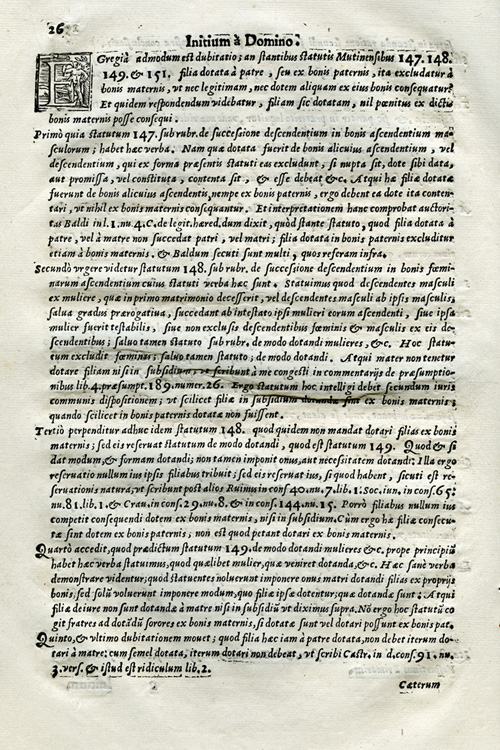 26
Initium à Domino.
EGregia admodum est dubitatio; an stantibus statutis Mutinensibus 147. 148.
149. & 151. filia dotata à patre, seu ex bonis paternis, ita excludatur à
bonis maternis, vt nec legitimam, nec dotem aliquam ex eius bonis consequatur?
Et quidem respondendum videbatur, filiam sic dotatam, nil pœnitus ex dictis
bonis maternis posse consequi.
Primò quia statutum 147. sub rubr. de successione descendentium in bonis ascendentium ma-
sculorum; habet hæc verba. Nam quæ dotata fuerit de bonis alicuius ascendentium, vel
descendentium, qui ex forma præsentis statuti eas excludunt, si nupta sit, dote sibi data,
aut promissa, vel constituta, contenta sit, & esse debeat &c. Atqui hæ filiæ dotatæ
fuerunt de bonis alicuius ascendentis, nempe ex bonis paternis, ergo debent ea dote ita conten-
tari, vt nihil ex bonis maternis consequantur. Et interpretationem hanc comprobat auctori-
tas Baldi in l. 1. nu. 4. C. de legit. hæred. dum dixit, quòd stante statuto, quod filia dotata à
patre, vel à matre non succedat patri, vel matri; filia dotata in bonis paternis excluditur
etiam à bonis maternis. & Baldum secuti sunt multi, quos referam infra.
Secundò vrgere videtur statutum 148. sub rubr. de successione descendentium in bonis fœmi-
narum ascendentium cuius statuti verba hæc sunt. Statuimus quod descendentes masculi
ex muliere, quæ in primo matrimonio decesserit, vel descendentes masculi ab ipsis masculis,
salua gradus prærogatiua, succedant ab intestato ipsi mulieri eorum ascendenti, siue ipsa
mulier fuerit testabilis, siue non exclusis descendentibus fœminis & masculis ex eis de-
scendentibus; saluo tamen statuto sub rubr. de modo dotandi mulieres, &c. Hoc statu-
tum excludit fœminas; saluo tamen statuto; de modo dotandi. Atqui mater non tenetur
dotare filiam nisi in subsidium, vt scribunt à me congesti in commentarijs de præsumptio-
nibus lib. 4. præsumpt. 189. numer. 26. Ergo statutum hoc intelligi debet secundum iuris
communis dispositionem; vt scilicet filiæ in subsidium dotandæ sint ex bonis maternis;
quando scilicet in bonis paternis dotatæ non fuissent.
Tertiò perpenditur adhuc idem statutum 148. quod quidem non mandat dotari filias ex bonis
maternis; sed eis reseruat statutum de modo dotandi, quod est statutum 149. Quod & si
dat modum, & formam dotandi; non tamen imponit onus, aut necessitatem dotandi: Illa ergo
reseruatio nullum ius ipsis filiabus tribuit; sed eis reseruat ius, si quod habent, sicuti est re-
seruationis natura, vt scribunt post alios Ruinus in cons. 40. nu. 7. lib. 1. Soc. iun. in cons. 65.
nu. 81. lib. 1. & Crau. in cons. 29. nu. 8. & in cons. 144. nu. 15. Porrò filiabus nullum ius
competit consequendi dotem ex bonis maternis, nisi in subsidium. Cùm ergo hæ filiæ consecu-
tæ sint dotem ex bonis paternis, non est quod petant dotari ex bonis maternis.
Quartò accedit, quod prædictum statutum 149. de modo dotandi mulieres &c. prope principiū
habet hæc verba statuimus, quod quælibet mulier, quæ veniret dotanda, &c. Hæc sanè verba
demonstrare videntur; quòd statuentes noluerunt imponere onus matri dotandi filias ex proprijs
bonis, sed solū voluerunt imponere modum, quo filiæ ipsæ dotentur; quæ dotandæ sunt: Atqui
filiæ de iure non sunt dotandæ à matre nisi in subsidiū vt diximus supra. Nō ergo hoc statutū co
git fratres ad dotādū sorores ex bonis maternis, si dotatæ sunt vel dotari possunt ex bonis pat.
Quinto, & vltimo dubitationem mouet; quod filia hæc iam à patre dotata, non debet iterum do-
tari à matre: cum semel dotata, iterum dotari non debeat, vt scribi Castr. in d. cons. 91. nu.
3. vers. & istud est ridiculum lib. 2.
Cæterum